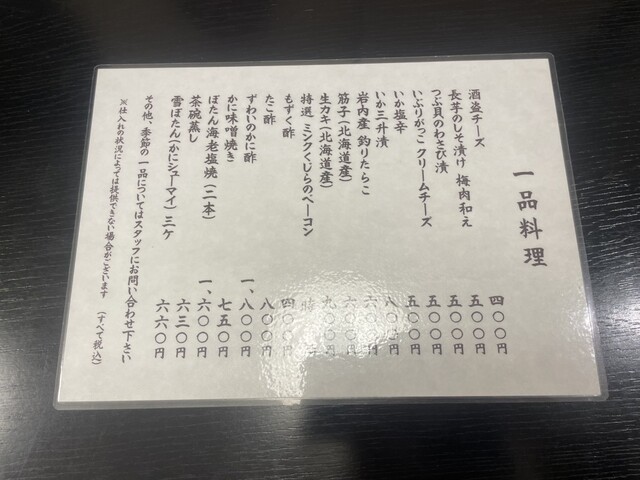 一品料理
酒盗チーズ 四〇〇円
長芋のしそ漬け 梅肉和え 五〇〇円
つぶ貝のわさび漬 五〇〇円
いぶりがっこ クリームチーズ 五〇〇円
いか塩辛 五〇〇円
いか三升漬 〇〇円
岩内産 釣りたらこ 六〇〇円
筋子(北海道産) 六〇〇円
生カキ(北海道産) 九〇〇円
特選 ミンクくじらのベーコン 時
もずく酢 四〇〇円
たこ酢 八〇〇円
ずわいのかに酢 一、八〇〇円
かに味噌焼き 七五〇円
ぼたん海老塩焼(二本) 一、六〇〇円
茶碗蒸し 六三〇円
雪ぼたん(かにシューマイ)三ケ 六六〇円
その他、季節の一品についてはスタッフにお問い合わせ下さい
※仕入れの状況によっては提供できない場合がございます (すべて税込)